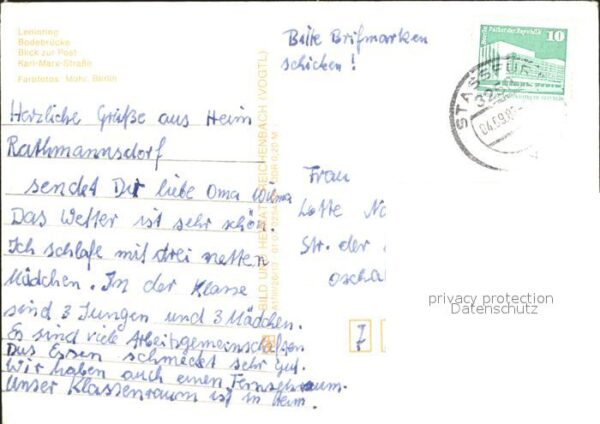 Leninring
Bodebrücke
Blick zur Post
Karl-Marx-Straße
Farbfotos: Mohr, Berlin
Bitte Brifmarken
schicken!
10
STASSFURT
Herzliche Grüße aus Heim
Rathmannsdorf
sendet Dir liebe Oma
Das Wetter ist sehr schön.
Ich schlafe mit drei netten
Mädchen. In der Klasse
sind 3 Jungen und 3 Mädchen.
Es sind viele Arbeitsgemeinschaften
Das Essen schmeckt sehr gut.
Wir haben auch einen Fernsehraum.
Unser Klassenraum ist in Heim.
BILD UND HEIMAT REICHENBACH (VOGTL)
Frau
Lotte
Str. der
oscha
7
privacy protection
Datenschutz